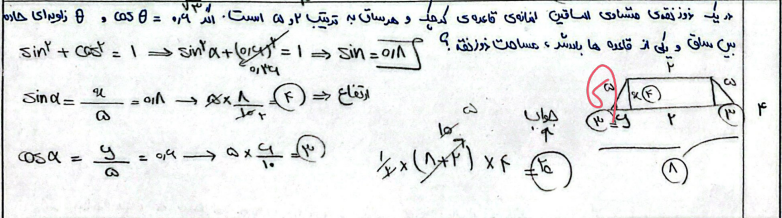 در یک ذوزنقه‌ی متساوی الساقین اندازه‌ی قاعده‌ی کوچک و هر ساق به ترتیب ۲ و ۵ است. اگر cos θ = ۰٫۶ و θ زاویه‌ای حاده
بین ساق و یکی از قاعده ها باشد، مساحت ذوزنقه؟
sin² + cos² = 1 ⟹ sin²α + (۰٫۶)² = 1 ⟹ sin = ۰٫۸
۰٫۳۶
sin α = x/۵ = ۰٫۸ → ۵ × ۸/۱۰ = ۴ ⟹ ارتفاع
cos α = y/۵ = ۰٫۶ → ۵ × ۶/۱۰ = ۳
جواب
۱/۲ × (۸+۲) × ۴ = ۲۰
۱۰ ۵
۲
۵ x ۴ ۵
۳ y ۲ ۳
۸
۴